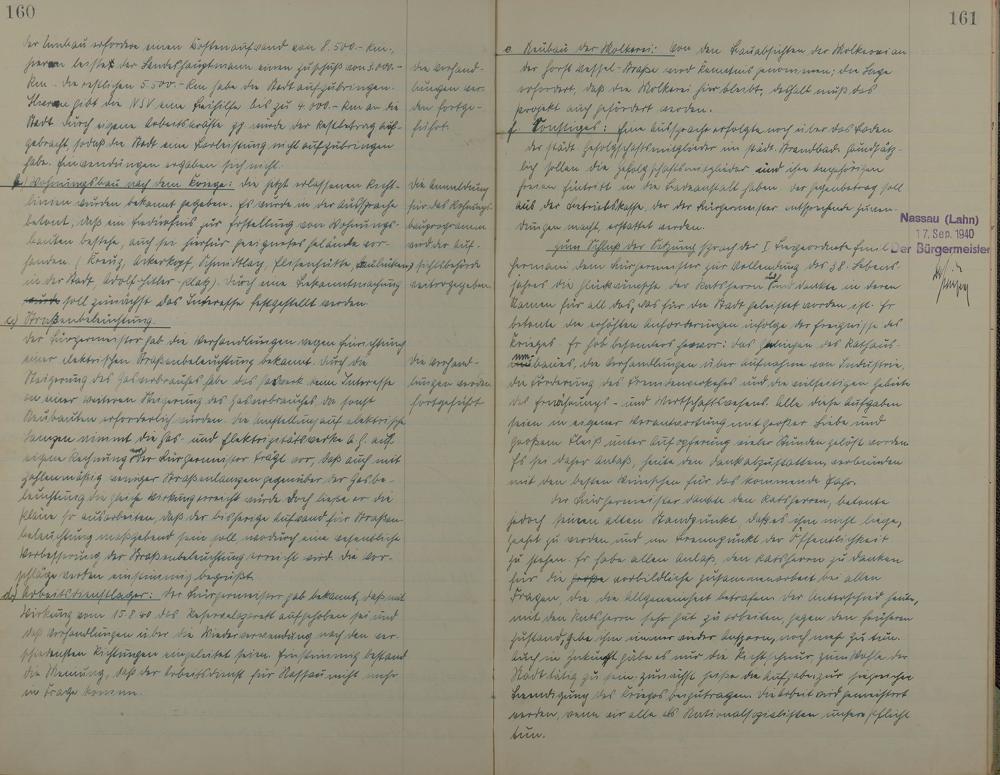 160
der Umbau erfordere einen Kostenaufwand von 8.500.- Rm.,
hierzu leistet der Landeshauptmann einen Zuschuß von 3.000.-
Rm. die restlichen 5.500.- Rm habe die Stadt aufzubringen.
Hierzu gibt die NSV eine Beihilfe bis zu 4.000.- Rm an die
Stadt. Durch eigene Arbeitskräfte pp würde der Restbetrag auf-
gebracht, sodaß die Stadt eine Barleistung nicht aufzubringen
habe. Einwendungen ergaben sich nicht.
die Verhand-
lungen wer-
den fortge-
führt.
b) Wohnungsbau nach dem Kriege: die jetzt erlassenen Richt-
linien wurden bekannt gegeben. Es wurde in der Aussprache
betont, daß ein Bedürfnis zur Erstellung von Wohnungs-
bauten bestehe, auch sei hierfür geeignetes Gelände vor-
handen (Kreuz, Ackerkopf, Schmidtlay, Elisenhütte, Baulücken
in der Stadt, Adolf-Hitler-Platz). Durch eine Bekanntmachung
soll zunächst das Interesse festgestellt werden.
die Anmeldung
für das Wohnungs-
bauprogramm
wird der Auf-
sichtsbehörde
weitergegeben.
c) Straßenbeleuchtung.
Der Bürgermeister gab die Verhandlungen wegen Einrichtung
einer elektrischen Straßenbeleuchtung bekannt. Durch die
Steigerung des Gasverbrauches habe das Gaswerk kein Interesse
an einer weiteren Steigerung des Gasverbrauches, da sonst
Neubauten erforderlich würden. Die Umstellung auf elektrische
Lampen nimmt die Gas- und Elektrizitätswerke A.G. auf
eigene Rechnung vor. Der Bürgermeister trägt vor, daß auch mit
zahlenmäßig weniger Straßenlampen gegenüber der Gasbe-
leuchtung die gleiche Wirkung erreicht würde. Doch ließe er die
Pläne so ausarbeiten, daß der bisherige Aufwand für Straßen-
beleuchtung maßgebend sein soll wodurch eine wesentliche
Verbesserung der Straßenbeleuchtung erreicht wird. Die Vor-
schläge werden einstimmig begrüßt.
die Verhand-
lungen werden
fortgeführt
d) Arbeitsdienstlager: Der Bürgermeister gab bekannt, daß mit
Wirkung vom 15.8.40 das Reservelazarett aufgehoben sei und
daß Verhandlungen über die Wiederverwendung nach den ver-
schiedensten Richtungen eingeleitet seien. Einstimmig bestand
die Meinung, daß der Arbeitsdienst für Nassau nicht mehr
in Frage komme.
161
e. Neubau der Molkerei: Von den Bauabsichten der Molkerei an
der Horst Wessel-Straße wird Kenntnis genommen; die Lage
erfordert, daß die Molkerei hier bleibt, deshalb muß das
Projekt auch gefördert werden.
f. Sonstiges: Eine Aussprache erfolgte noch über das Baden
der städt. Gefolgschaftsmitglieder im städt. Strandbad. Grundsätz-
lich sollen die Gefolgschaftsmitglieder und ihre Angehörigen
freien Eintritt in die Badeanstalt haben. Der Gegenbetrag soll
aus der Betriebskasse, der der Bürgermeister entsprechende Zuwen-
dungen macht, erstattet werden.
Zum Schluß der Sitzung sprach der I. Beigeordnete Emil
Hermani dem Bürgermeister zur Vollendung des 38. Lebens-
jahres die Glückwünsche der Ratsherrn und dankte in deren
Namen für all das, das für die Stadt geleistet worden ist. Er
betonte die erhöhten Anforderungen infolge der Ereignisse des
Krieges. Er hob besonders hervor: das Gelingen des Rathaus-
umbaues, die Verhandlungen über Aufnahme von Industrie,
die Förderung des Fremdenverkehrs und die vielseitigen Gebiete
des Ernährungs- und Wirtschaftswesens. Alle diese Aufgaben
seien in eigener Verantwortung mit großer Liebe und
großem Fleiß unter Aufopferung vieler Stunden gelöst worden.
Es sei daher Anlaß, heute den Dank abzustatten, verbunden
mit den besten Wünschen für das kommende Jahr.
Der Bürgermeister dankte den Ratsherren, betonte
jedoch seinen alten Standpunkt, daß es ihm nicht liege,
geehrt zu werden und im Brennpunkt der Öffentlichkeit
zu stehen. Er habe allen Anlaß, den Ratsherrn zu danken
für die große vorbildliche Zusammenarbeit bei allen
Fragen, die die Allgemeinheit betrafen. Der Unterschied heute,
mit den Ratsherrn sehr gut zu arbeiten, gegen den früheren
Zustand, gäbe ihm immer wieder Ansporn, noch mehr zu tun.
Auch in Zukunft gäbe es nur die Richtschnur, zum Wohle der
Stadt tätig zu sein. Zunächst heiße die Aufgabe: zur siegreichen
Beendigung des Krieges beizutragen. Die Arbeit wird gemeistert
werden, wenn wir alle als Nationalsozialisten unsere Pflicht
tun.
Nassau (Lahn)
17. Sep. 1940
Der Bürgermeister